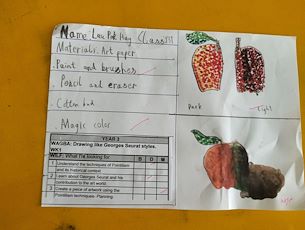 Name Class
Materials: Art paper
. Paint and brushes
. Pencil and eraser
. Cotton bud
. Magic color
Dark
Light
YEAR 3
WAGBA: Drawing like Georges Seurat styles.
WK1
WILF: What I'm looking for B O M
1 Understand the techniques of Pointillism and its historical context
2 Learn about Georges Seurat and his contribution to the art world.
3 Create a piece of artwork using the Pointillism techniques- Planning.